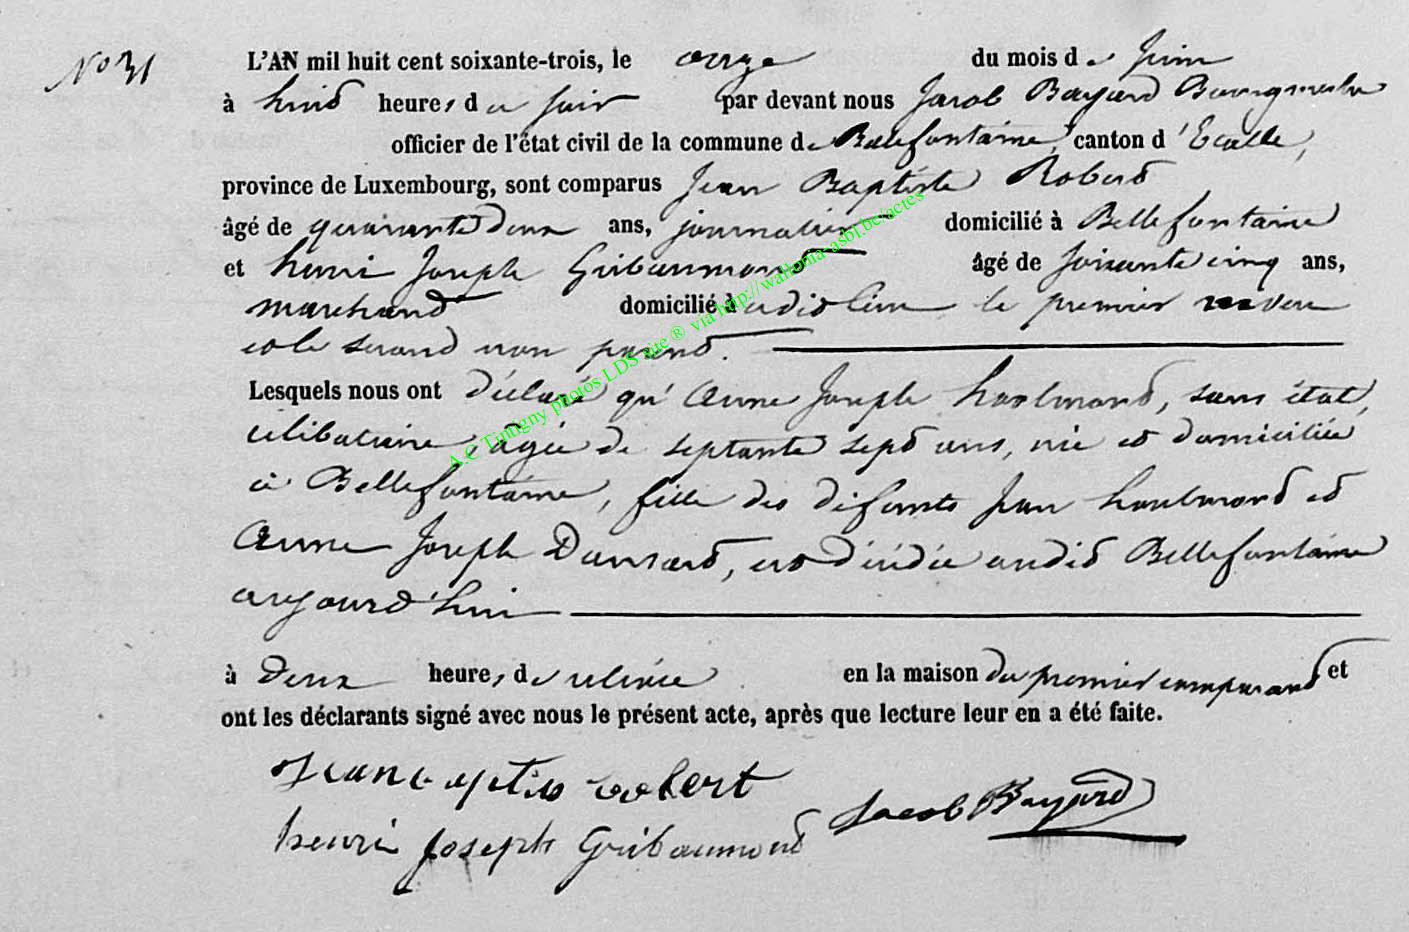 No 31
L'AN mil huit cent soixante-trois, le onze du mois de Juin
à huit heures du soir par devant nous Jacob Bayard Bourgmestre
officier de l'état civil de la commune de Bellefontaine, canton d'Etalle,
province de Luxembourg, sont comparus Jean Baptiste Robert
âgé de quarante deux ans, journalier domicilié à Bellefontaine
et henri Joseph Gribaumont âgé de soixante cinq ans,
marchand domicilié à udit lieu le premier neveu
et le second non parent.
Lesquels nous ont déclaré qu'Anne Joseph haulmond, sans état,
célibataire, âgée de septante sept ans, née et domiciliée
à Bellefontaine, fille des défunts Jean haulmond et
Anne Joseph Dansard, est décédée audit Bellefontaine
aujourd'hui
à deux heures de relevée en la maison du premier comparant et
ont les déclarants signé avec nous le présent acte, après que lecture leur en a été faite.
Jean baptiste robert
henri joseph Gribaumond Jacob Bayard
A.C Tintigny photos LDS site ® via http://wallonia-asbl.be/actes